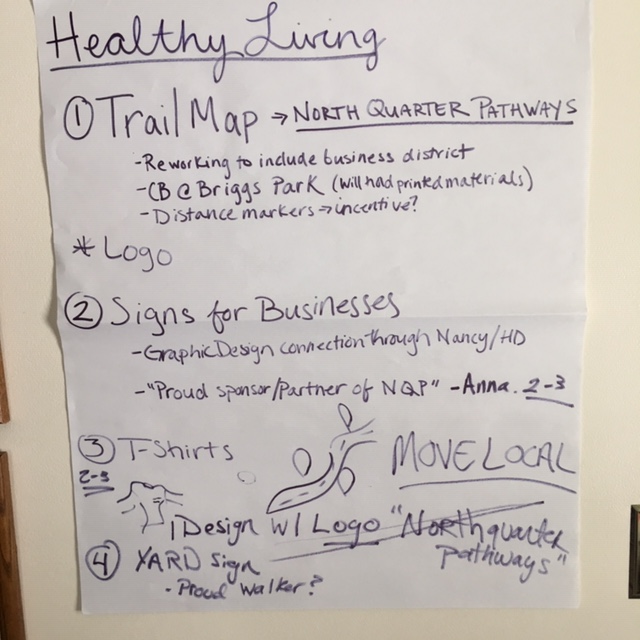 Healthy Living
① Trail Map → NORTH QUARTER PATHWAYS
- Reworking to include business district
- CB @ Briggs Park (will had printed materials)
- Distance markers → incentive?
* Logo
② Signs for Businesses
- Graphic Design connection through Nancy/HD
- "Proud sponsor/Partner of NQP" - Anna. 2-3
③ T-Shirts
2-3
MOVE LOCAL
1 Design w/ Logo "Northquarter
Pathways"
④ YARD Sign
- Proud Walker?